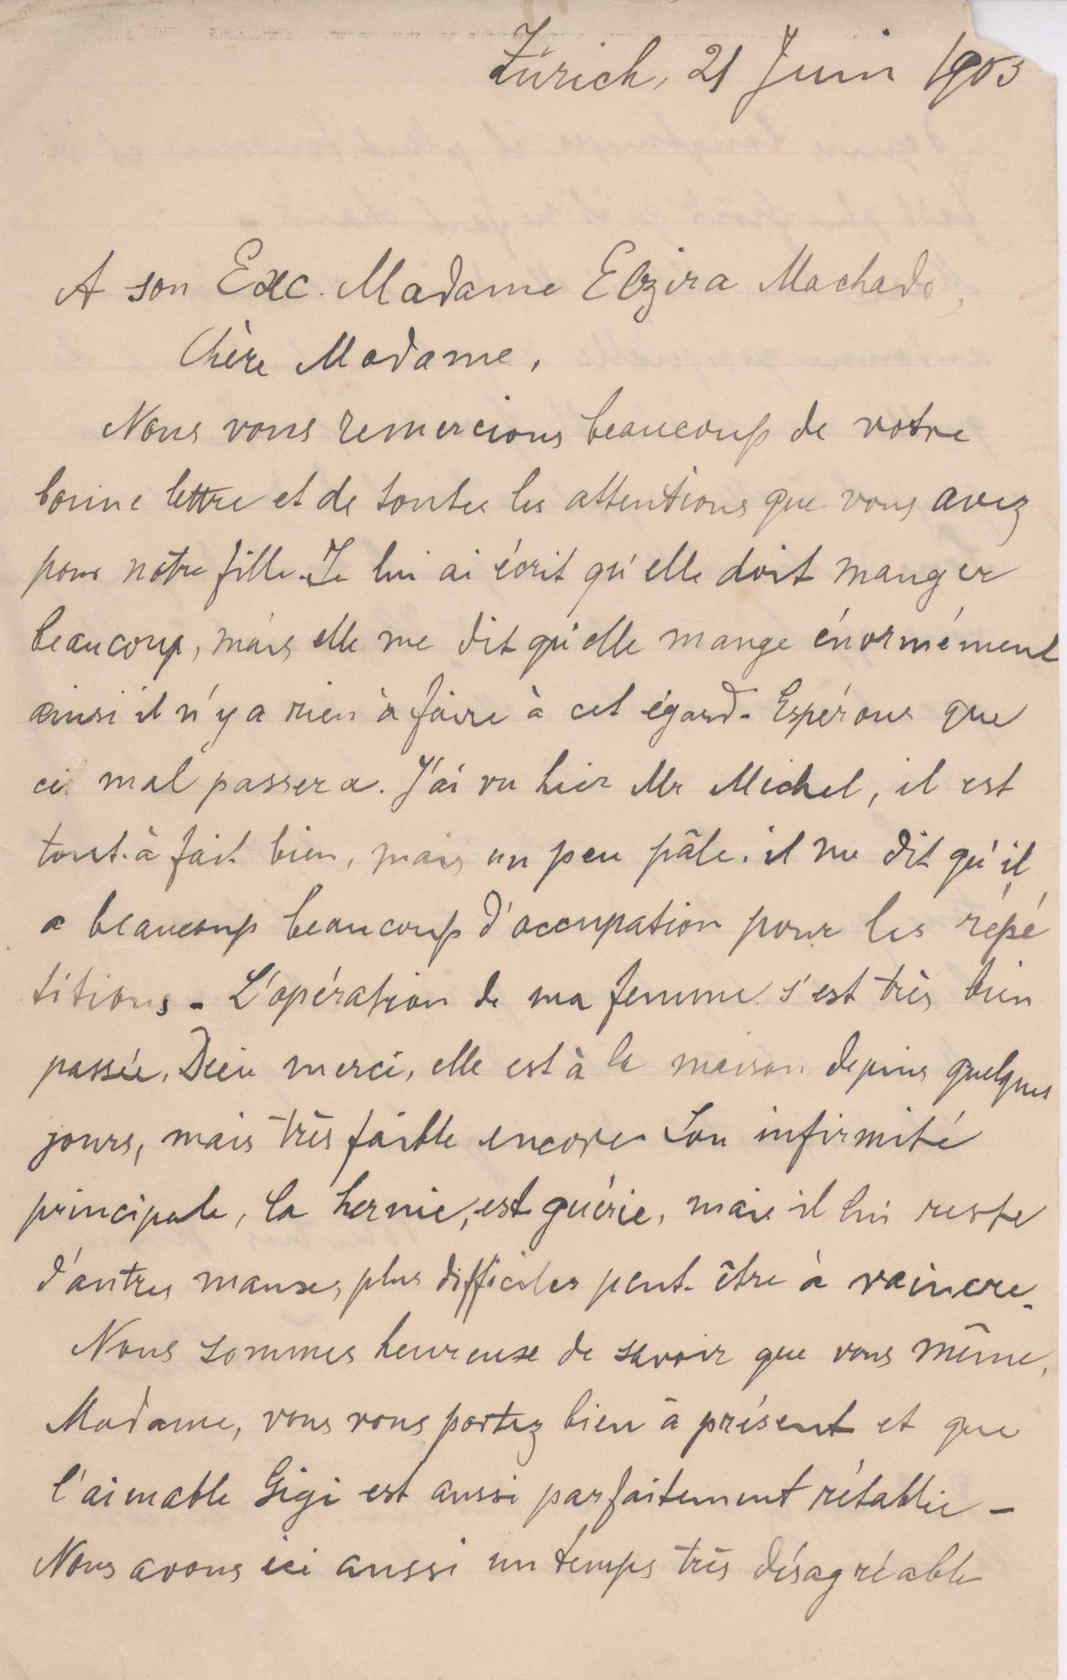 Zürich, 21 Juin 1903
A son Exc. Madame Elzira Machado,
Chère Madame,
Nous vous remercions beaucoup de votre
bonne lettre et de toutes les attentions que vous avez
pour notre fille. Je lui ai écrit qu'elle doit manger
beaucoup, mais elle me dit qu'elle mange énormément
ainsi il n'y a rien à faire à cet égard. Espérons que
ce mal passera. J'ai vu hier Mr Michel, il est
tout-à fait bien, mais un peu pâle. il me dit qu'il
a beaucoup beaucoup d'occupation pour les répé
titions - L'opération de ma femme s'est très bien
passée, Dieu merci, elle est à la maison depuis quelques
jours, mais très faible encore. Son infirmité
principale, la hernie, est guérie, mais il lui reste
d'autres maux, plus difficiles peut-être à vaincre.
Nous sommes heureuse de savoir que vous même,
Madame, vous vous portez bien à présent et que
l'aimable Gigi est aussi parfaitement rétablie -
Nous avons ici aussi un temps très désagréable